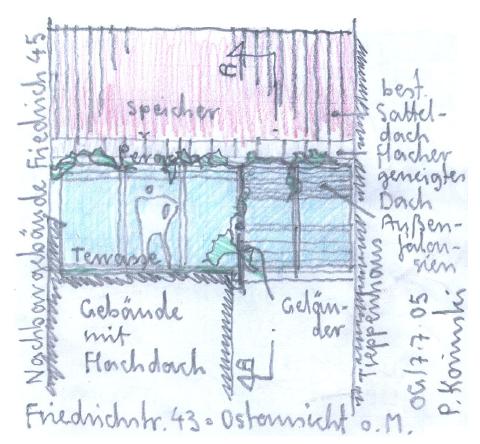 Nachbargebäude Friedrich 45
A
Speicher
Pergola
Terrasse
Gebäude
mit
Flachdach
Gelän-
der
A
best.
Sattel-
dach
flacher
geneigtes
Dach
Außen-
jalou-
sien
Treppenhaus
OG/7.7.05
Friedrichstr. 43 = Ostansicht o. M.